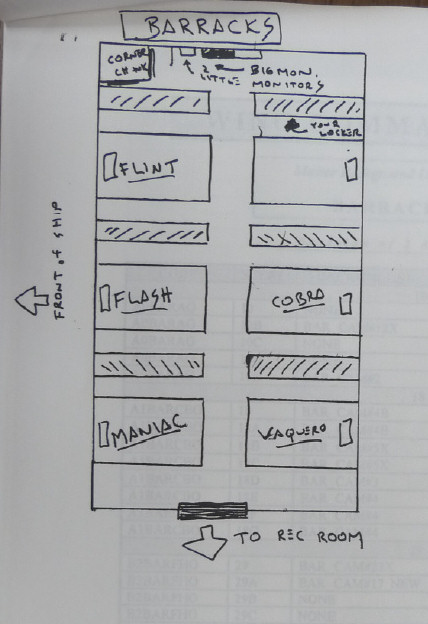 BARRACKS
CORNER
2
LITTLE
BIG MON.
MONITORS
YOUR
LOCKER
FLINT
FRONT of SHIP
FLASH
COBRA
MANIAC
VAQUERO
TO REC ROOM